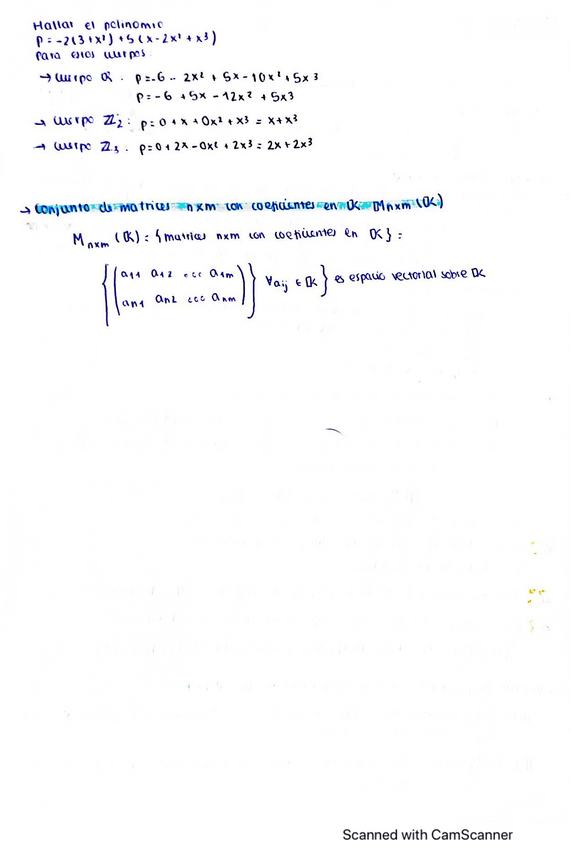 Hallar el polinomio
p = -2(3+x²) + 5(x-2x²+x³)
para estos cuerpos:
→ cuerpo ℚ: p = -6 - 2x² + 5x - 10x² + 5x³
p = -6 + 5x - 12x² + 5x³
→ cuerpo ℤ₂: p = 0 + x + 0x² + x³ = x + x³
→ cuerpo ℤ₃: p = 0 + 2x - 0x² + 2x³ = 2x + 2x³
→ conjunto de matrices nxm con coeficientes en 𝕂 Mnxm(𝕂)
Mnxm(𝕂) = {matrices nxm con coeficientes en 𝕂} =
a11 a12 ... a1m
an1 an2 ... anm
∀aij ∈ 𝕂} es espacio vectorial sobre 𝕂
Scanned with CamScanner